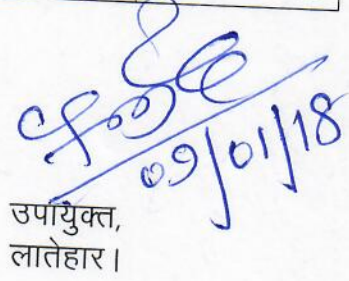 09/01/18
उपायुक्त,
लातेहार।